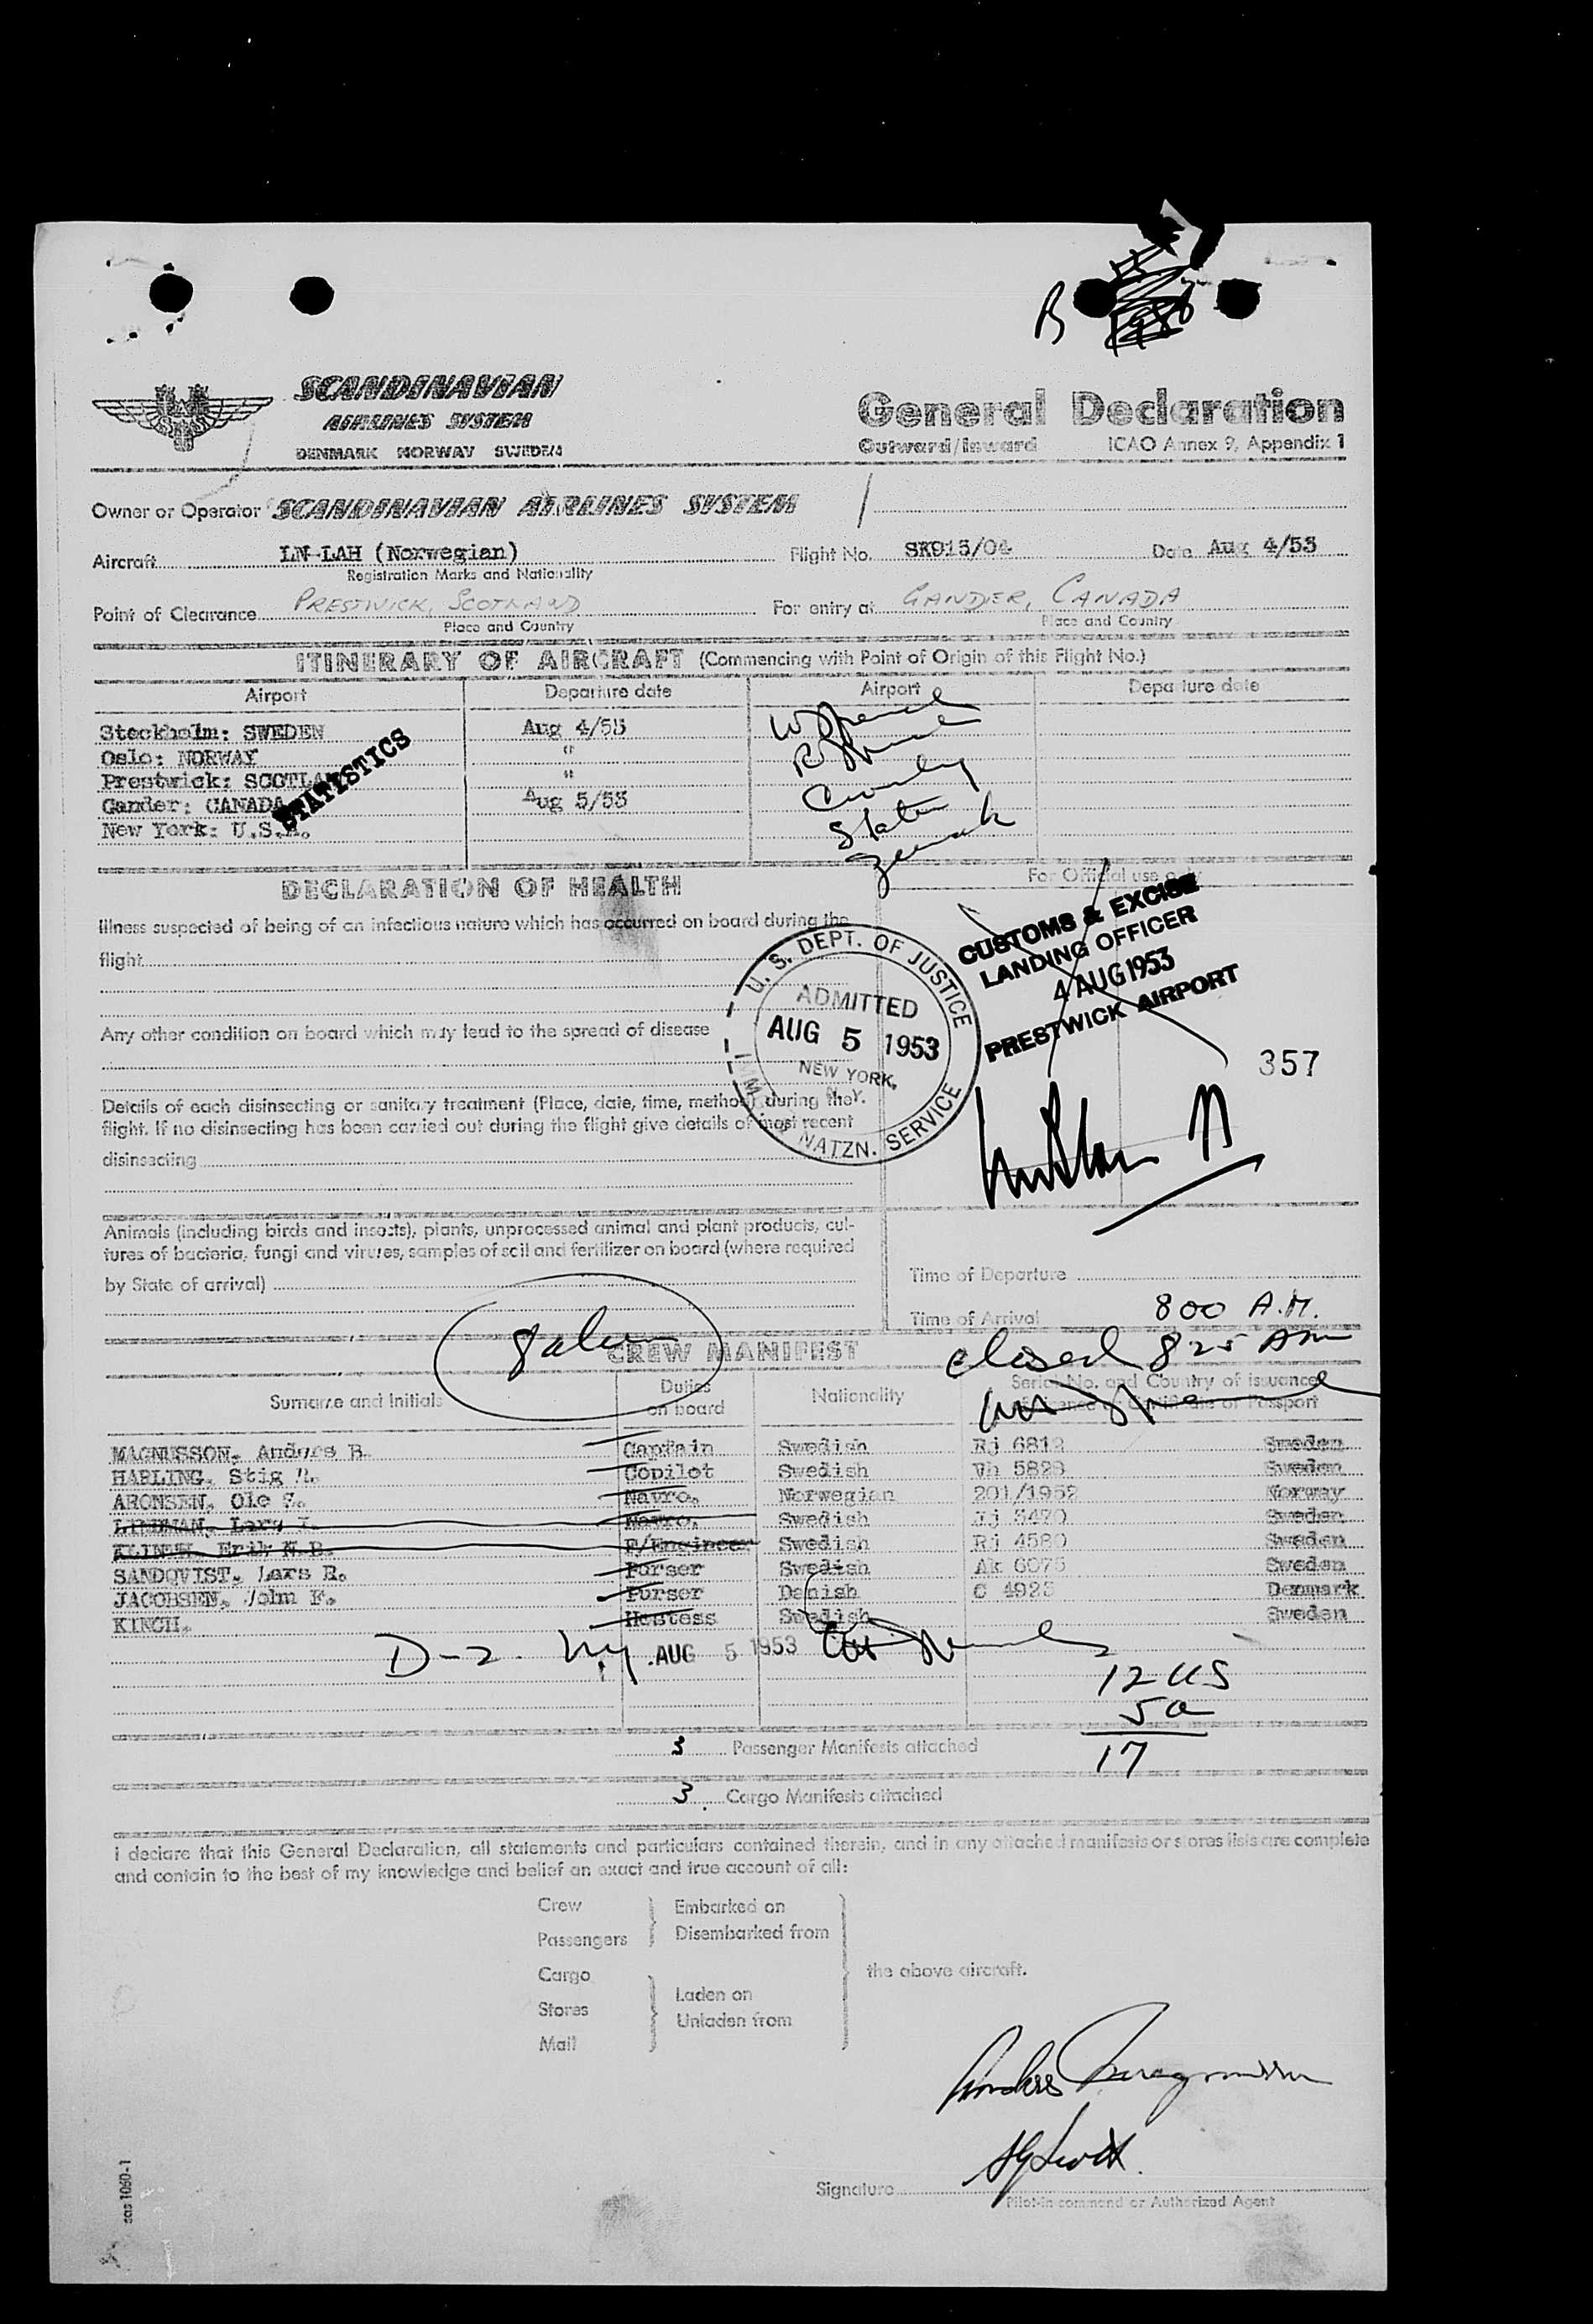 B
SCANDINAVIAN
AIRLINES SYSTEM
DENMARK NORWAY SWEDEN
General Declaration
Outward/Inward ICAO Annex 9, Appendix 1
Owner or Operator SCANDINAVIAN AIRLINES SYSTEM
Aircraft LN-LAH (Norwegian) Flight No. SK915/04 Date Aug 4/53
Registration Marks and Nationality
Point of Clearance PRESTWICK, SCOTLAND For entry at GANDER, CANADA
Place and Country Place and Country
ITINERARY OF AIRCRAFT (Commencing with Point of Origin of this Flight No.)
Airport Departure date Airport Departure date
Stockholm: SWEDEN Aug 4/53
Oslo: NORWAY "
Prestwick: SCOTLAND "
Gander: CANADA Aug 5/53
New York: U.S.A.
STATISTICS
DECLARATION OF HEALTH
For Official use only
Illness suspected of being of an infectious nature which has occurred on board during the
flight
Any other condition on board which may lead to the spread of disease
Details of each disinsecting or sanitary treatment (Place, date, time, method) during the
flight. If no disinsecting has been carried out during the flight give details of most recent
disinsecting
U. S. DEPT. OF JUSTICE
ADMITTED
AUG 5 1953
NEW YORK,
N.Y.
IMM. & NATZN. SERVICE
CUSTOMS & EXCISE
LANDING OFFICER
4 AUG 1953
PRESTWICK AIRPORT
357
Animals (including birds and insects), plants, unprocessed animal and plant products, cul-
tures of bacteria, fungi and viruses, samples of soil and fertilizer on board (where required
by State of arrival)
Time of Departure
Time of Arrival 800 A.M.
closed 825 AM
CREW MANIFEST
Surname and Initials Duties on board Nationality Serial No. and Country of issuance
Passport
MAGNUSSON, Anders B. Captain Swedish Rj 6812 Sweden
HARLING, Stig Copilot Swedish Vh 5828 Sweden
ARONSEN, Ole Navro. Norwegian 201/1952 Norway
LINDMAN, Lars I. Navro. Swedish 3470 Sweden
KLINGH, Erik N.B. F/Engineer Swedish Rj 4580 Sweden
SANDQVIST, Lars R. Purser Swedish Ak 6075 Sweden
JACOBSEN, John F. Purser Danish C 4923 Denmark
KINCH, Hostess Swedish Sweden
D-2. NY AUG 5 1953
12 US
5 a
17
3 Passenger Manifests attached
3 Cargo Manifests attached
I declare that this General Declaration, all statements and particulars contained therein, and in any attached manifests or stores lists are complete
and contain to the best of my knowledge and belief an exact and true account of all:
Crew Embarked on
Passengers Disembarked from
Cargo the above aircraft.
Stores Laden on
Mail Unladen from
Anders Magnusson
Signature
Pilot-in command or Authorized Agent
sas 1060-1